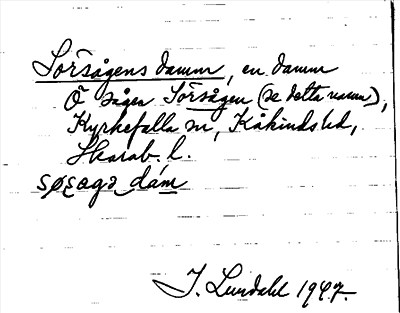 Sörsågens damm, en damm
Ö sågen Sörsågen (se detta namn),
Kyrkefalla sn, Kåkinds hd,
Skarab. l.
søsagə dám
J. Lundahl 1947.